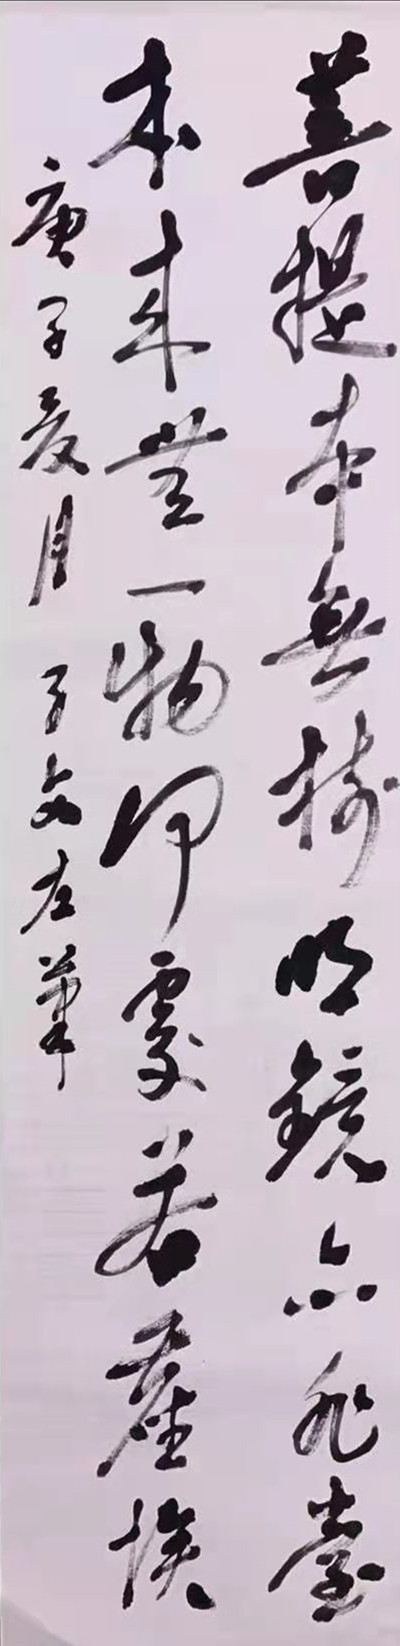 菩提本無樹明鏡亦非臺
本来無一物何處若塵埃
庚子夏月 子文左筆